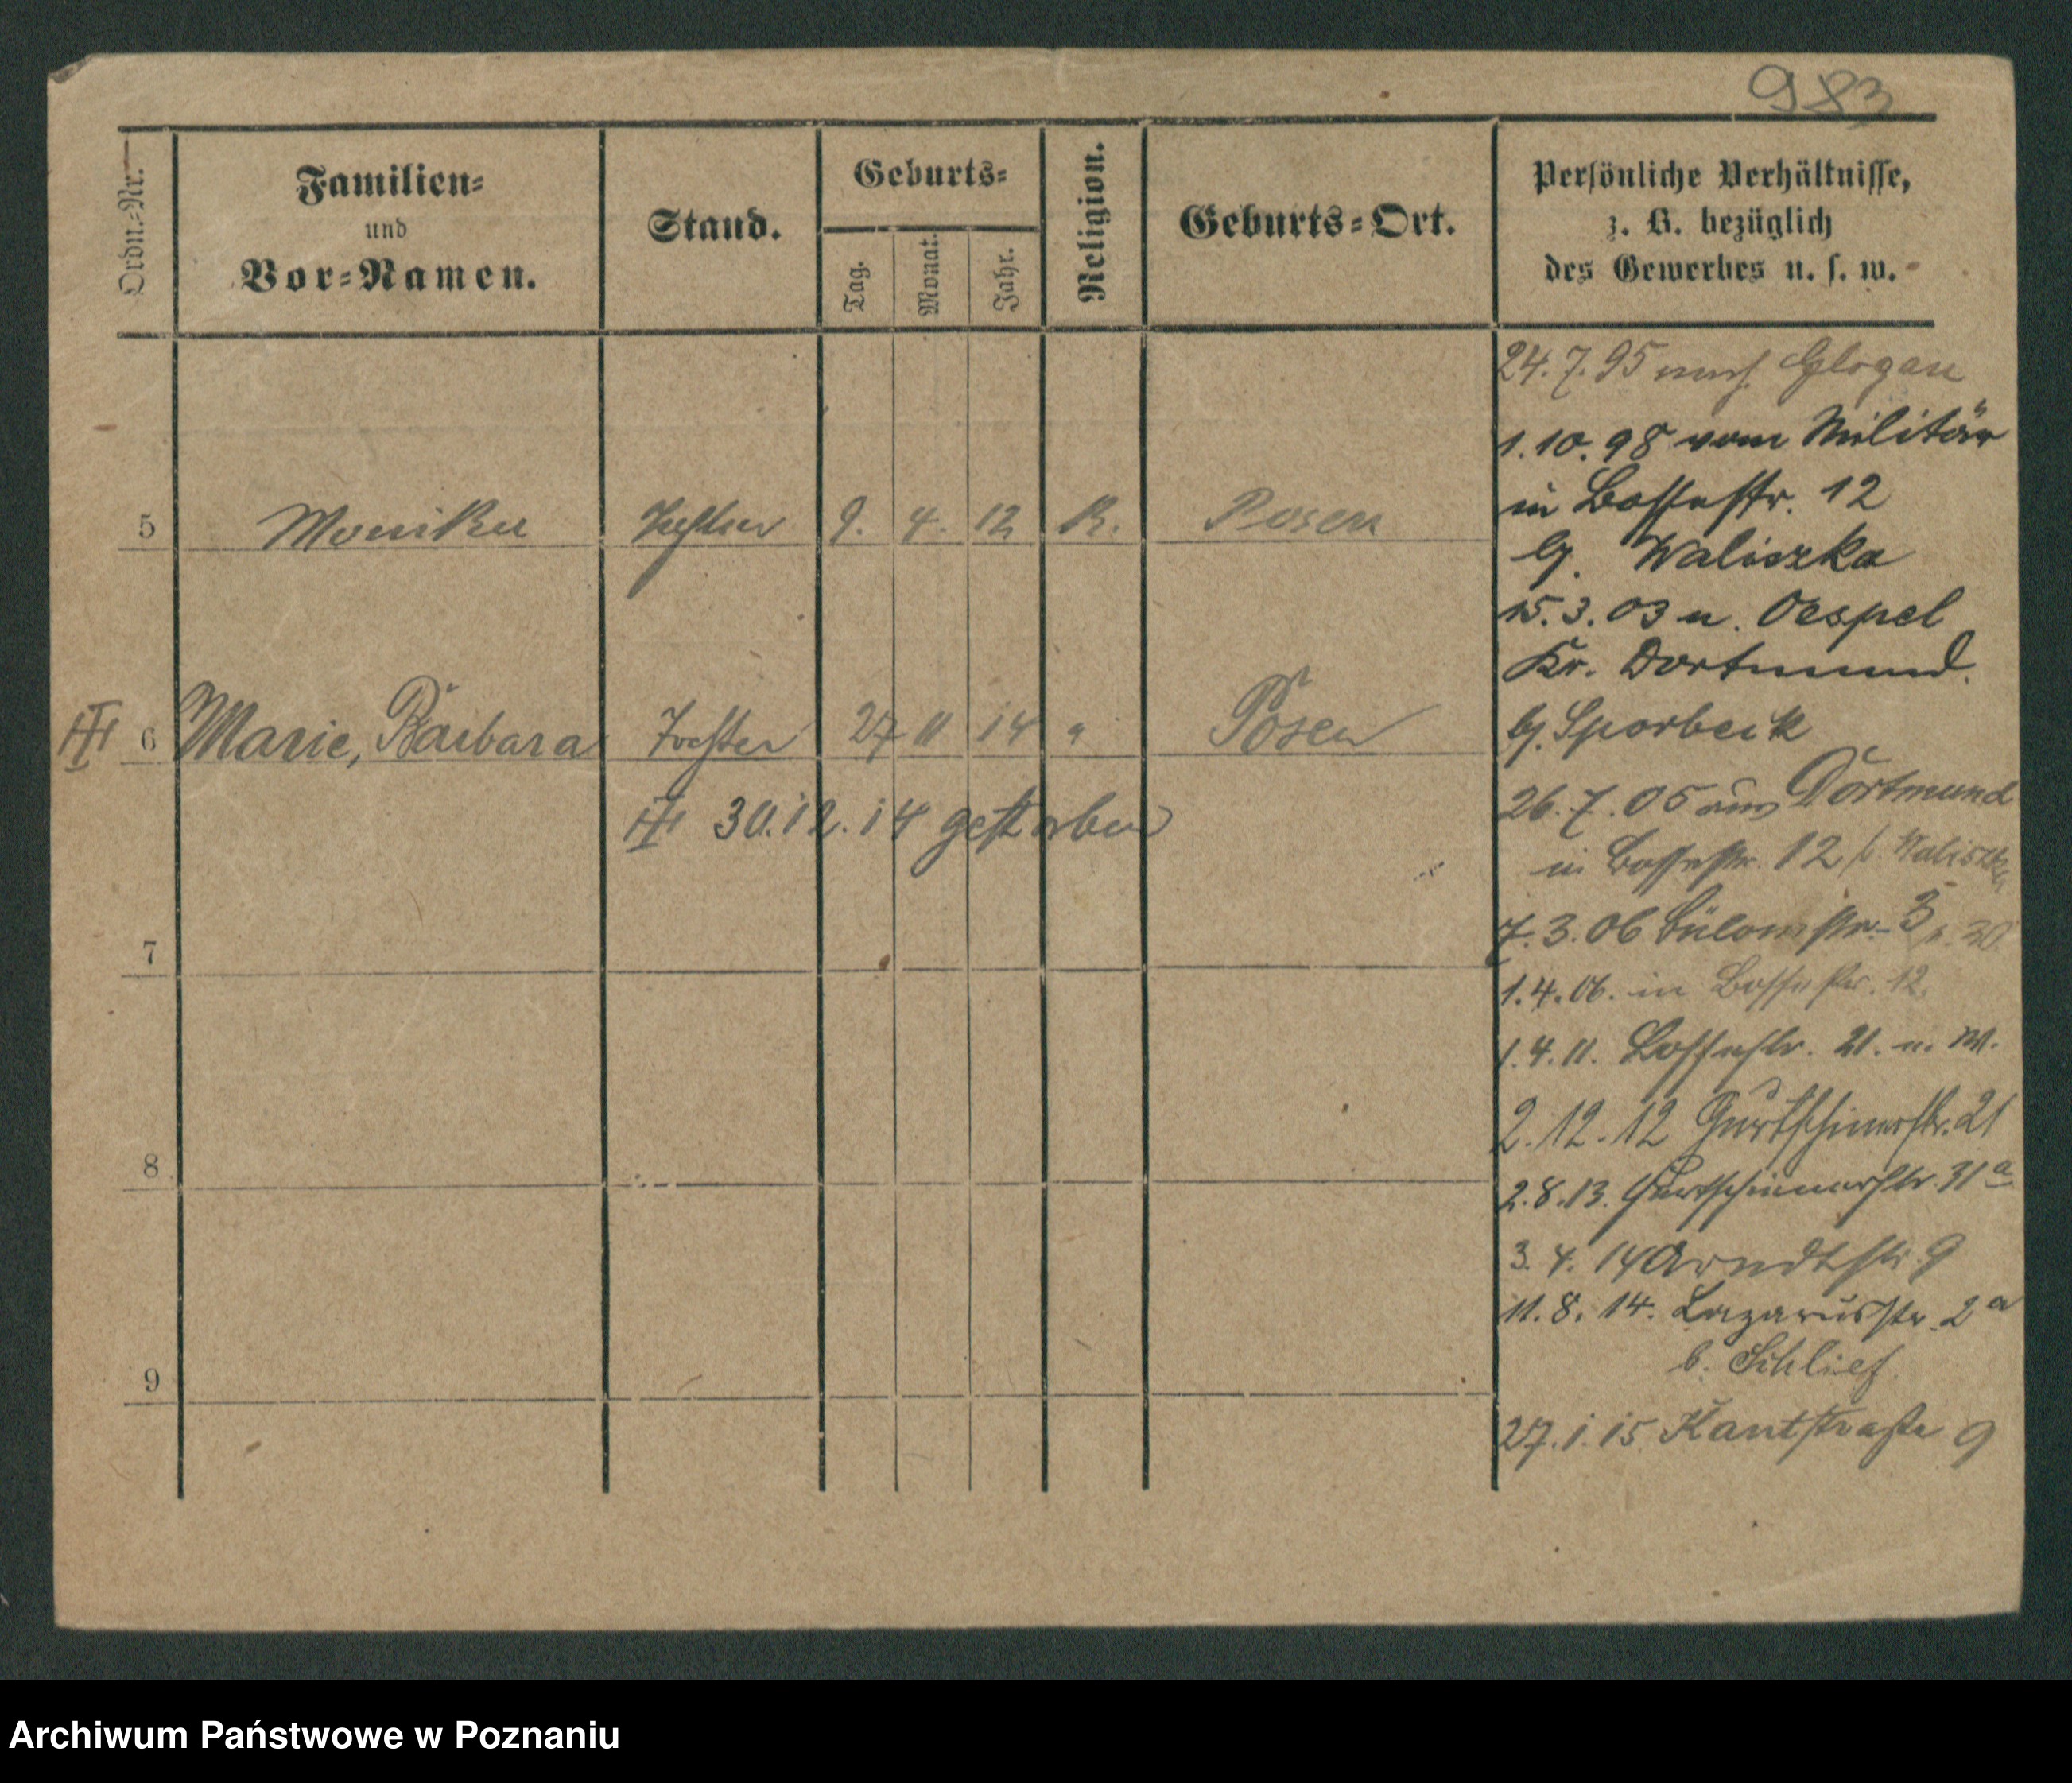 983
Ordn.=Nr.
Familien=
und
Vor=Namen.
Stand.
Geburts=
Tag.
Monat.
Jahr.
Religion.
Geburts=Ort.
Persönliche Verhältnisse,
z. B. bezüglich
des Gewerbes u. s. w.
5 Monika Tochter 9. 4. 12 K. Posen
6 Marie, Barbara Tochter 27 11 14 " Posen
30.12.14 gestorben
7
8
9
24.7.95 nach Glogau
1.10.98 vom Militär
in Bossestr. 12
bj. Waliszka
15.3.03 n. Oespel
Kr. Dortmund.
bj. Sporbeck
26.7.05 aus Dortmund
in Bossestr. 12 b. Waliszka
7.3.06 Bülowstr. 3
1.4.06. in Bossestr. 12.
1.4.11. Bossestr. 21. n. W.
2.12.12 Gurtschinerstr. 21
2.8.13. Gurtschinerstr. 31a
3.4.14 Arndtstr. 9
11.8.14. Lazarusstr. 2a
b. Schlief.
27.1.15 Kantstraße 9
Archiwum Państwowe w Poznaniu